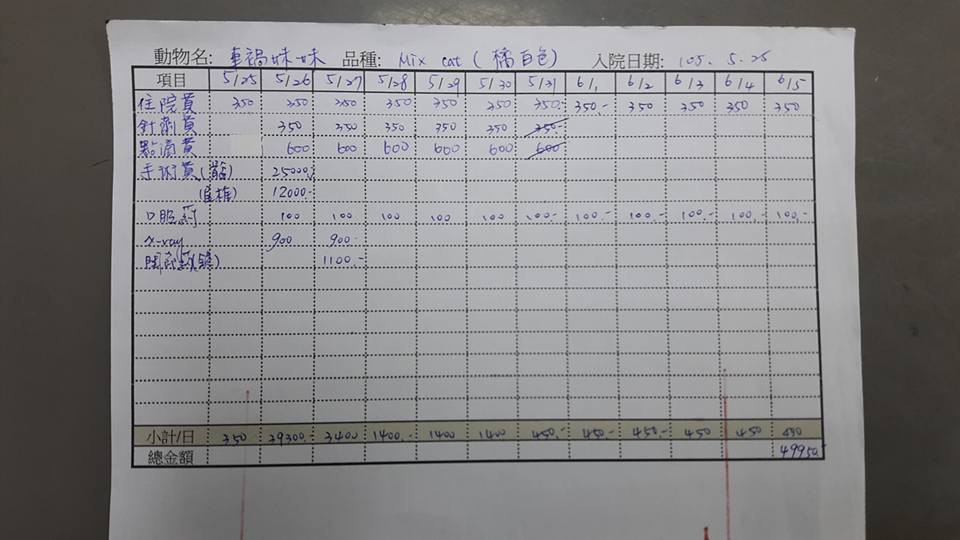 動物名: 車禍妹妹 品種: Mix cat (橘白色) 入院日期: 105. 5. 25
項目 5/25 5/26 5/27 5/28 5/29 5/30 5/31 6/1 6/2 6/3 6/4 6/5
住院費 350 350 350 350 350 350 350.- 350.- 350 350 350 350
針劑費 350 350 350 350 350 350.-
點滴費 600 600 600 600 600 600
手術費( 25000.-
12000.-
口服藥 100 100 100 100 100 100.- 100.- 100.- 100.- 100.- 100.-
x-ray 900 900.-
1100.-
小計/日 350 39300.- 3400 1400.- 1400 1400 450.- 450.- 450.- 450 450 450
總金額 49950.